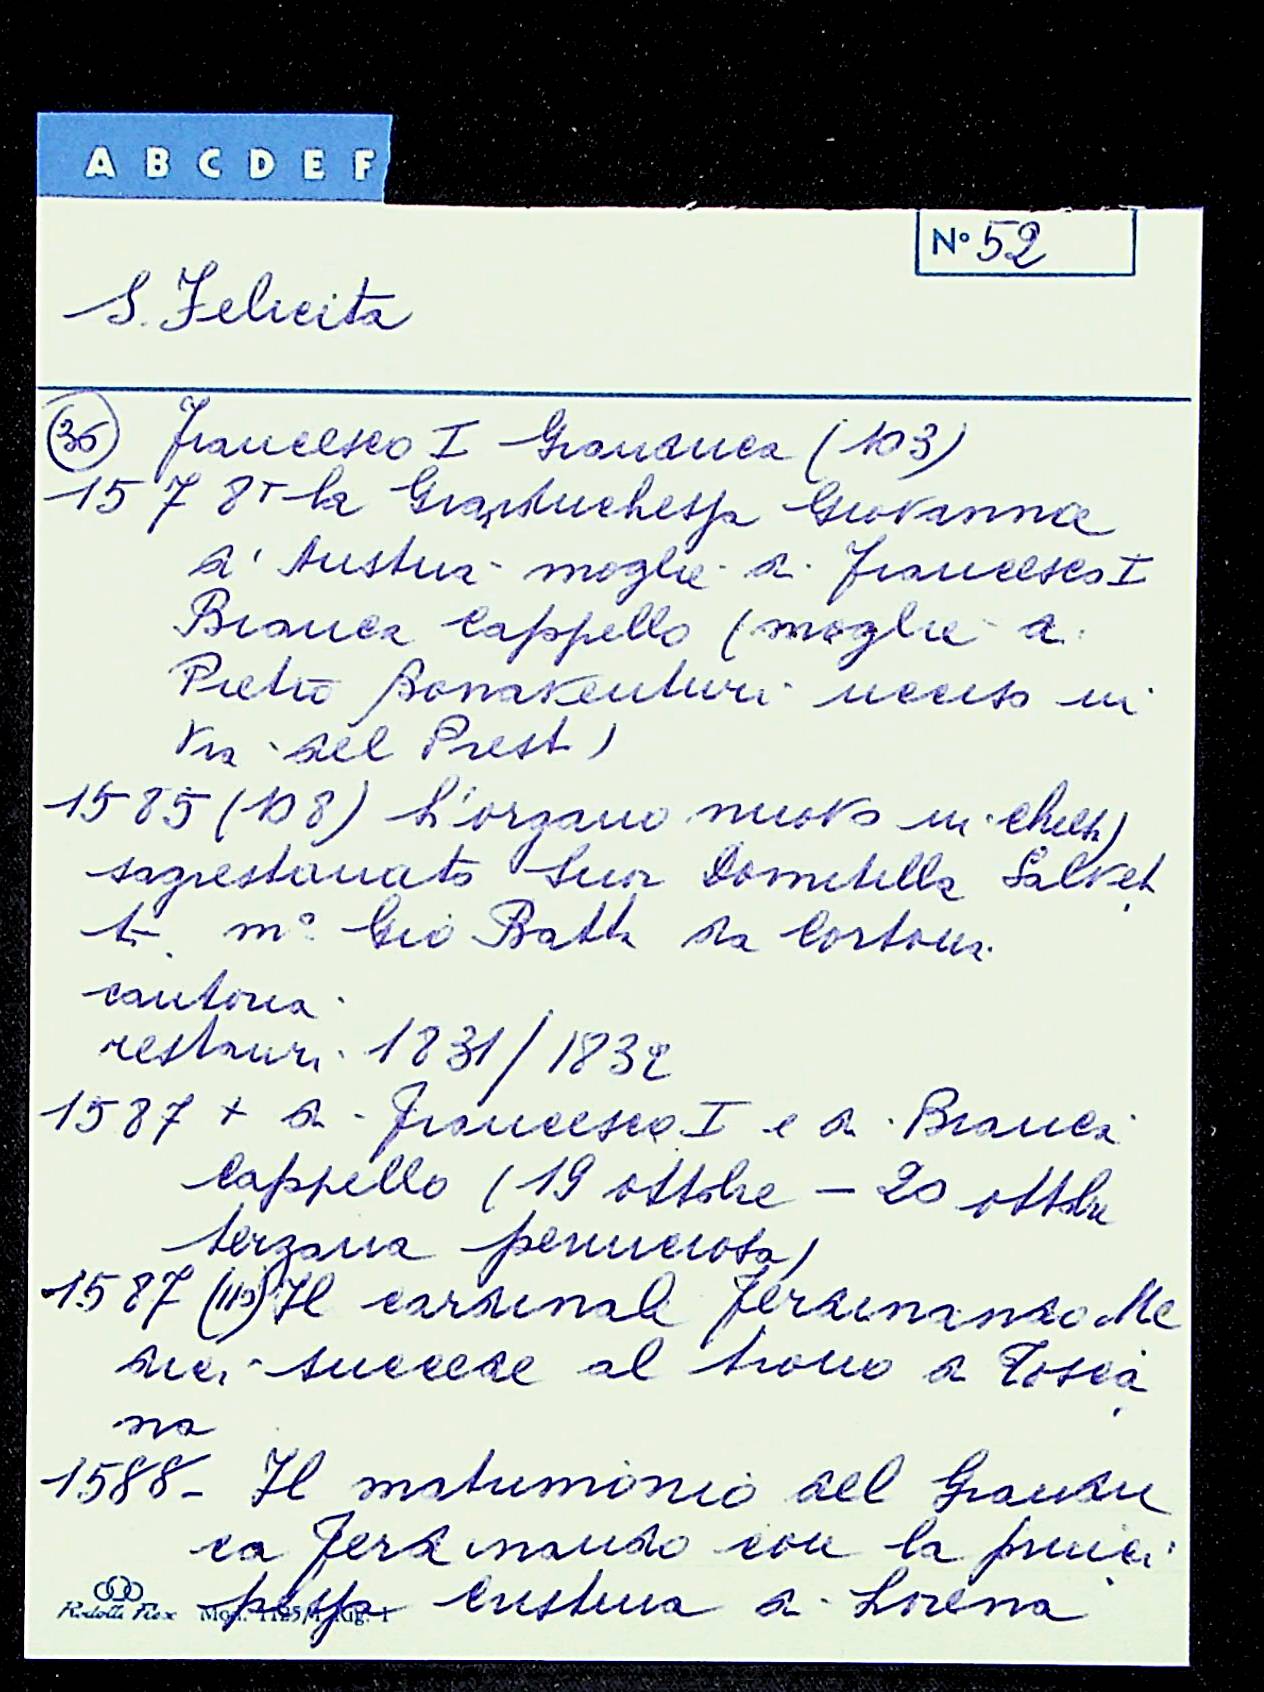 A B C D E F
N° 52
S. Felicita
36 Francesco I Granduca (103)
1578 † la Granduchessa Giovanna
d'Austria moglie di Francesco I
Bianca Cappello (moglie di
Pietro Bonaventuri ucciso in
Via del Prest)
1585 (108) L'organo nuovo in chiesa
sagrestanato Suor Domitilla Salvet
ti m° Gio Batta da Cortona
cantoria
restauri 1831/1832
1587 + di Francesco I e di Bianca
Cappello (19 ottobre - 20 ottobre
terzana perniciosa)
1587 (110) Il cardinale Ferdinando Me
dici succede al trono di Tosca
na
1588 - Il matrimonio del Grandu
ca Ferdinando con la princi
pessa Cristina di Lorena
Mod.